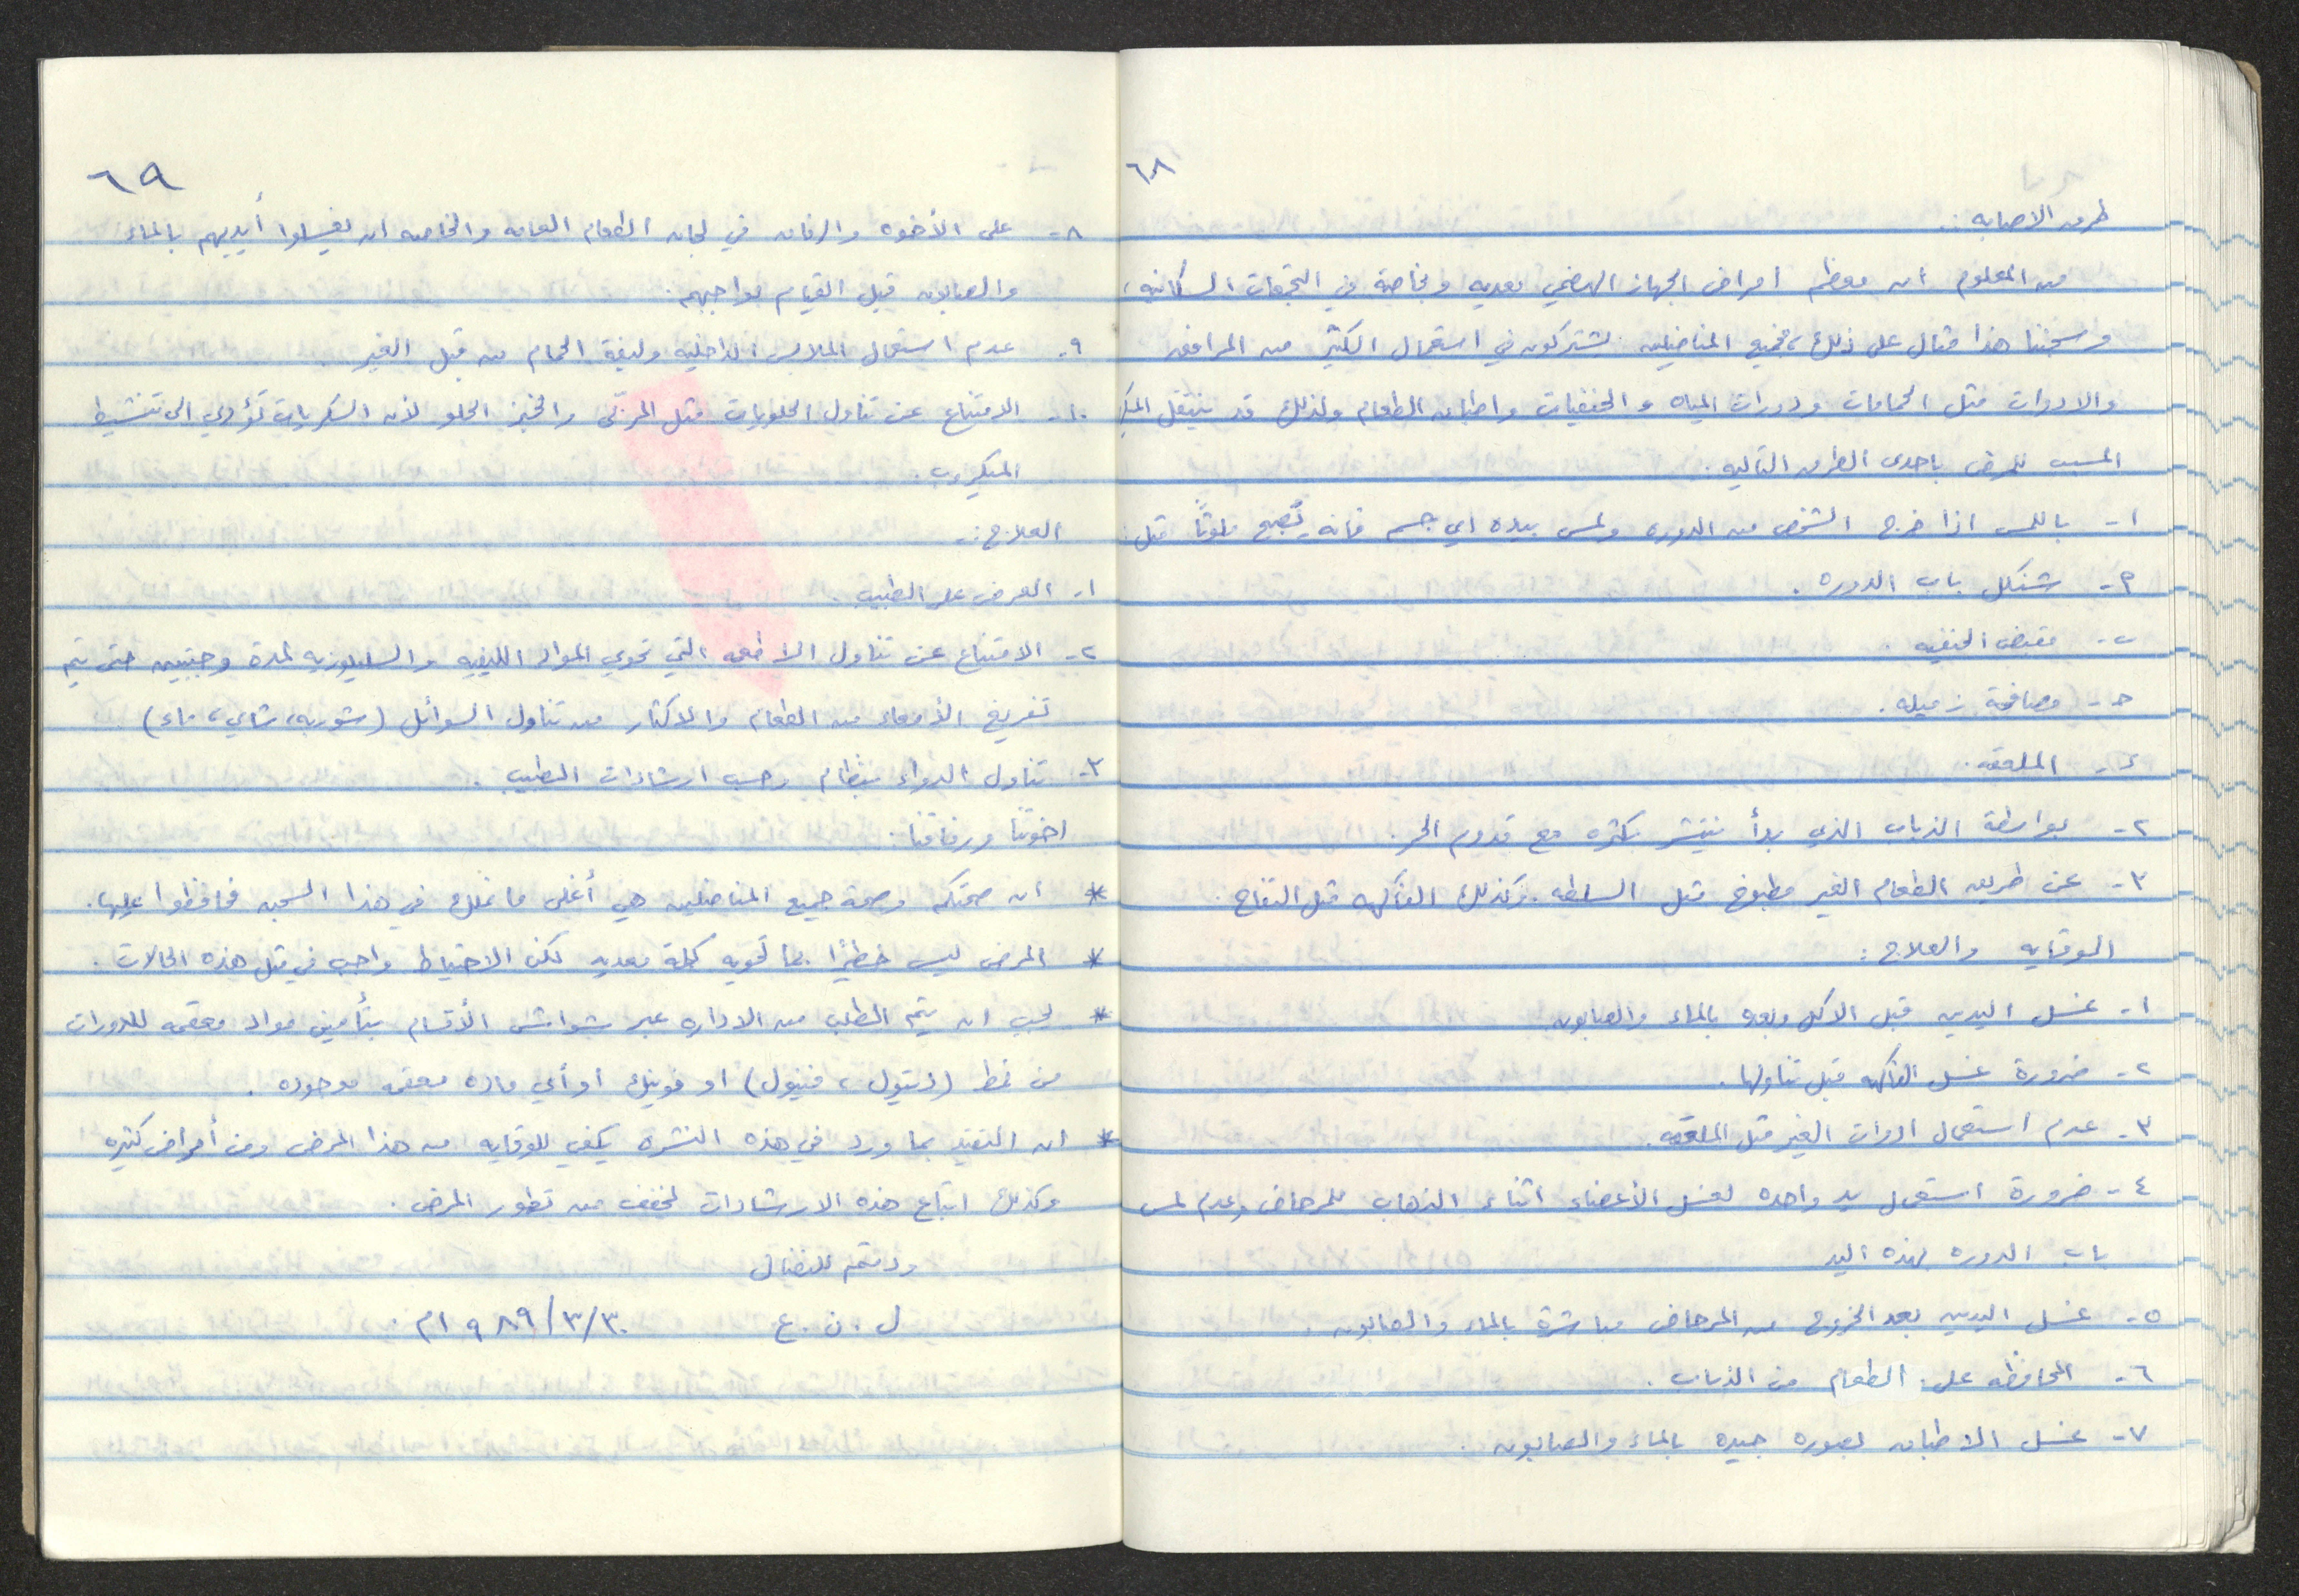 ٦٨
طرق الاصابه :.
من المعلوم ان معظم امراض الجهاز الهضمي معديه وبخاصة في التجمعات السكانيه ،
وسجننا هذا مثال على ذلك ، فجميع المناضلين يشتركون في استعمال الكثير من المرافق
والادوات مثل الحمامات ودورات المياه و الحنفيات واطباق الطعام ولذلك قد ينتقل
المسبب للمرض باحدى الطرق التاليه .
١- باللمس اذا خرج الشخص من الدوره ولمس بيده اي جسم فانه يُصبح ملوثاً مثل :
٩- شنكل باب الدوره .
ب- مقبض الحنفيه .
ح- مصافحة زميله .
د- الملعقه .
٢- بواسطة الذباب الذي بدأ ينتشر بكثره مع قدوم الحر .
٣- عن طريق الطعام الغير مطبوخ مثل السلطه . وكذلك الفاكهه مثل التفاح .
الوقايه والعلاج :
١- غسل اليدين قبل الاكل وبعده بالماء والصابون
٢- ضرورة غسل الفاكهه قبل تناولها .
٣- عدم استعمال ادوات الغير مثل الملعقه .
٤- ضرورة استعمال يد واحده لغسل الأعضاء اثناء الذهاب للمرحاض وعدم لمس
باب الدوره بهذه اليد
٥- غسل اليدين بعد الخروج من المرحاض مباشرة بالماء والصابون .
٦- المحافظه على الطعام من الذباب .
٧- غسل الاطباق بصوره جيده بالماء والصابون .
٦٩
٨- على الأخوه والرفاق في لجان الطعام العامه والخاصه ان يغسلوا أيديهم بالماء
والصابون قبل القيام بواجبهم .
٩- عدم استعمال الملابس الداخليه وليفة الحمام من قبل الغير .
١٠- الامتناع عن تناول الحلويات مثل المربّى والخبز الحلو لأن السكريات تؤدي الى تنشيط
الميكروب .
العلاج :-
١- العرض على الطبيب .
٢- الامتناع عن تناول الاطعمه التي تحوي المواد الليفيه والسليلوزيه لمدة وجبتين حتى يتم
تفريغ الأمعاء من الطعام والاكثار من تناول السوائل (شوربه ، شاي ، ماء)
٣- تناول الدواء بنظام وحسب ارشادات الطبيب .
اخوتنا ورفاقنا :
* ان صحتكم وصحة جميع المناضلين هي أغلى ما نملك في هذا السجن فحافظوا عليها .
* المرض ليس خطيرًا بما تحويه كلمة معديه لكن الاحتياط واجب في مثل هذه الحالات .
* يجب ان يتم الطلب من الاداره عبر شواشي الأقسام بتأمين مواد معقمه للدورات
من نمط (ديتول ، فنيول) او فوينك او أي ماده معقمه موجوده .
* ان التقيد بما ورد في هذه النشره يكفي للوقايه من هذا المرض ومن أمراض كثيره
وكذلك اتباع هذه الارشادات يخفف من تطور المرض .
ودمتم للنضال
ل . ن . ع ٣٠/٣/١٩٨٩م .